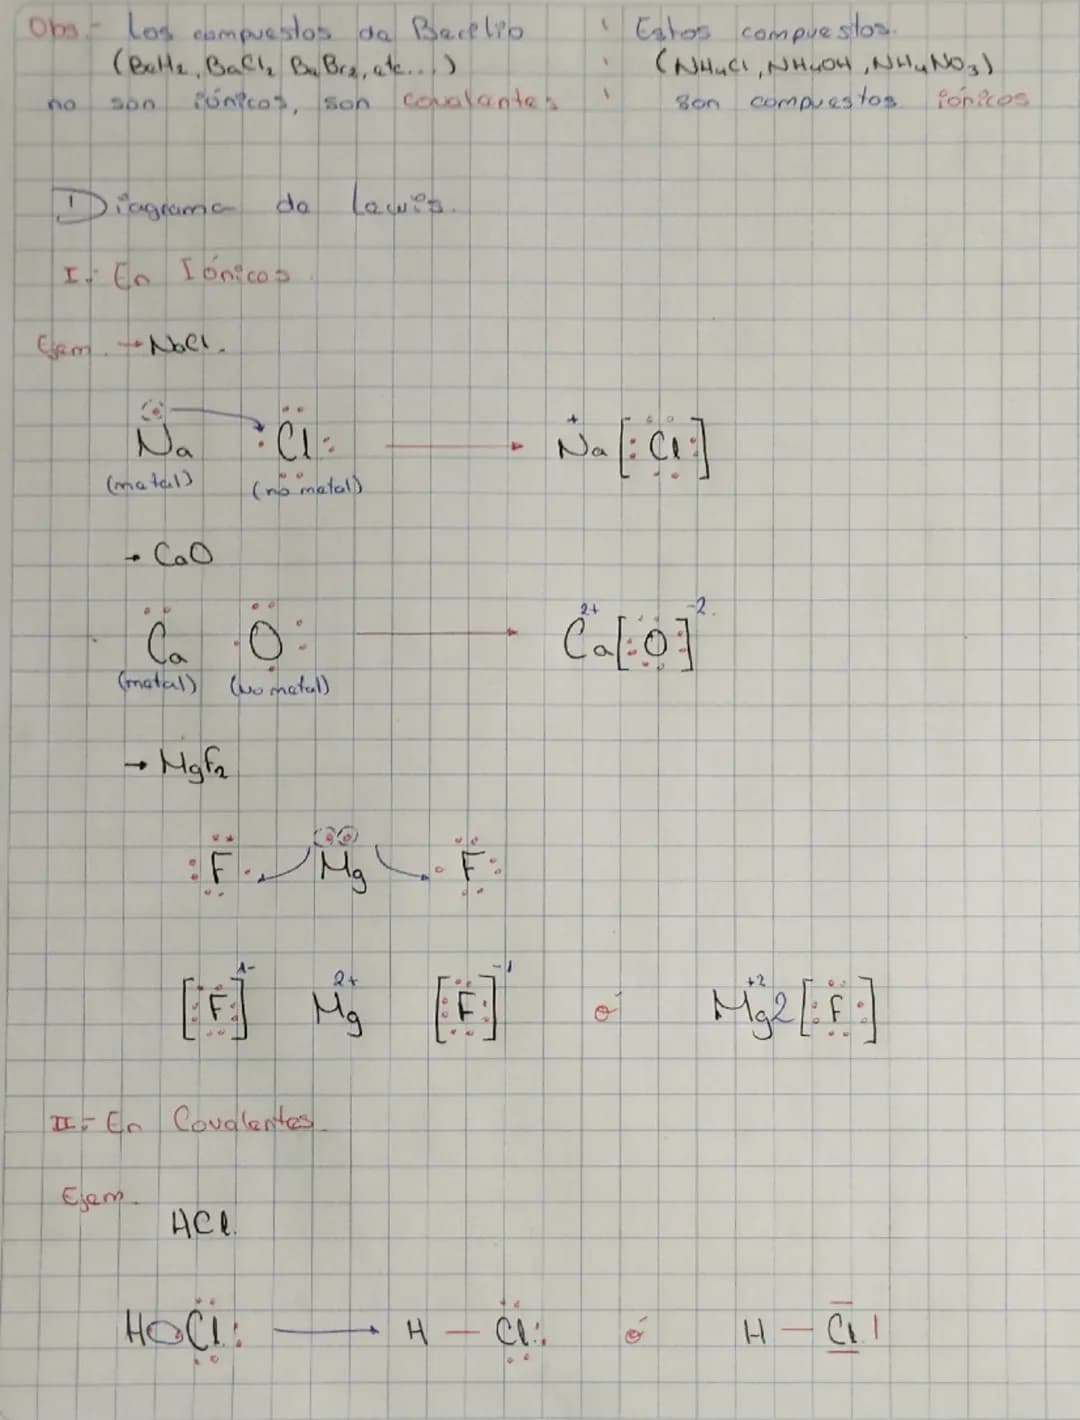 Obs.- Los compuestos de Berelio
(BeH2, BaCl2 BaBr2, etc...)
no son iónicos, son covalentes
Estos compuestos.
(NH4Cl, NH4OH, NH4NO3)
son compuestos iónicos
Diagrama de Lewis.
I.- En Iónicos
Ejem. → NaCl.
Na :Cl: → Na+ [:Cl:]
(metal) (no metal)
→ CaO
Ca O: → Ca2+ [:O:]-2
(metal) (no metal)
→ MgF2
:F. Mg .F:
[:F:]1- Mg2+ [:F:]-1 ó Mg+2 2[:F:]
II.- En Covalentes
Ejem.
HCl.
H Cl: → H — Cl: ó H — Cl|